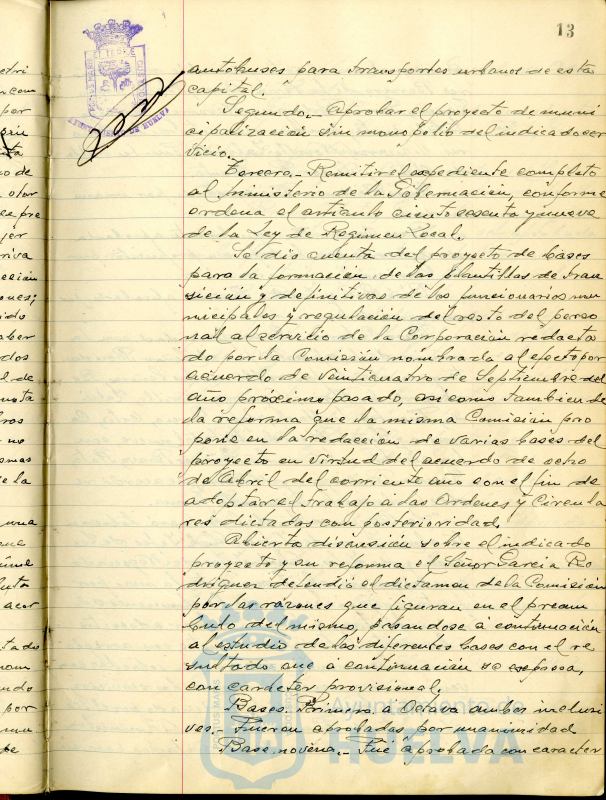 13
autobuses para transportes urbanos de esta
capital.
Segundo.- Aprobar el proyecto de muni
cipalización sin monopolio del indicado ser
vicio.
Tercero.- Remitir el expediente completo
al Ministerio de la Gobernación, conforme
ordena el artículo ciento sesenta y nueve
de la Ley de Regimen Local.
Se dió cuenta del proyecto de bases
para la formación de las plantillas de tran
sición y definitivas de los funcionarios mu
nicipales y regulación del resto del perso
nal al servicio de la Corporación redacta
do por la Comisión nombrada al efecto por
acuerdo de veinticuatro de Septiembre del
año próximo pasado, asi como tambien de
la reforma que la misma Comisión pro
pone en la redacción de varias bases del
proyecto en virtud del acuerdo de ocho
de Abril del corriente año con el fin de
adoptar el trabajo a las Ordenes y Circula
res dictadas con posterioridad.
Abierta discusión sobre el indicado
proyecto y su reforma el Señor Garcia Ro
driguez defendió el dictamen de la Comisión
por las razones que figuran en el pream
bulo del mismo, pasandose a continuación
al estudio de las diferentes bases con el re
sultado que a continuación se expresa,
con carácter provisional.
Bases Primera a Octava ambas inclusi
ves.- Fueron aprobadas por unanimidad
Base novena.- Fué aprobada con caracter
Ayuntamiento de
HUELVA